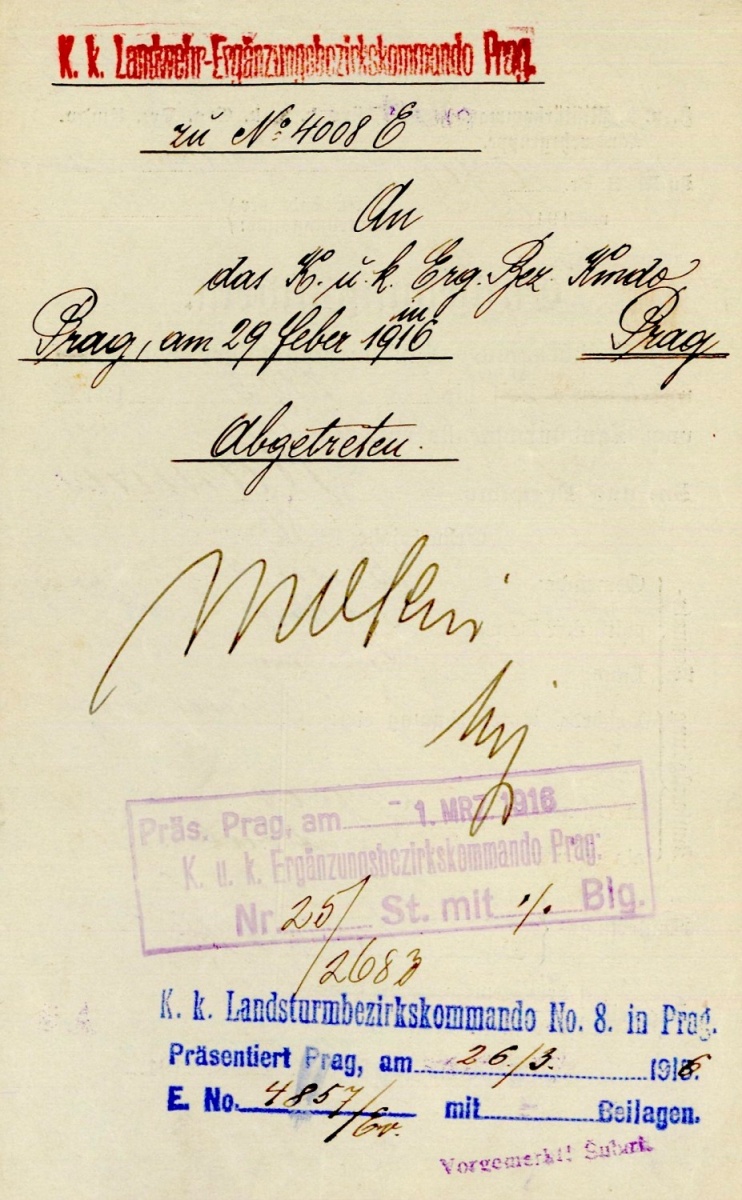 K. k. Landwehr-Ergänzungsbezirkskommando Prag.
zu No. 4008 E
An
das K. u. k. Erg. Bez. Kmdo
in
Prag, am 29 feber 1916 Prag
Abgetreten.
Präs. Prag, am - 1. MRZ. 1916
K. u. k. Ergänzungsbezirkskommando Prag:
Nr. 25/ St. mit ·/. Blg.
2683
K. k. Landsturmbezirkskommando No. 8. in Prag.
Präsentiert Prag, am 26/3. 1916.
E. No. 4857/Ev. mit Beilagen.
Vorgemerkt!